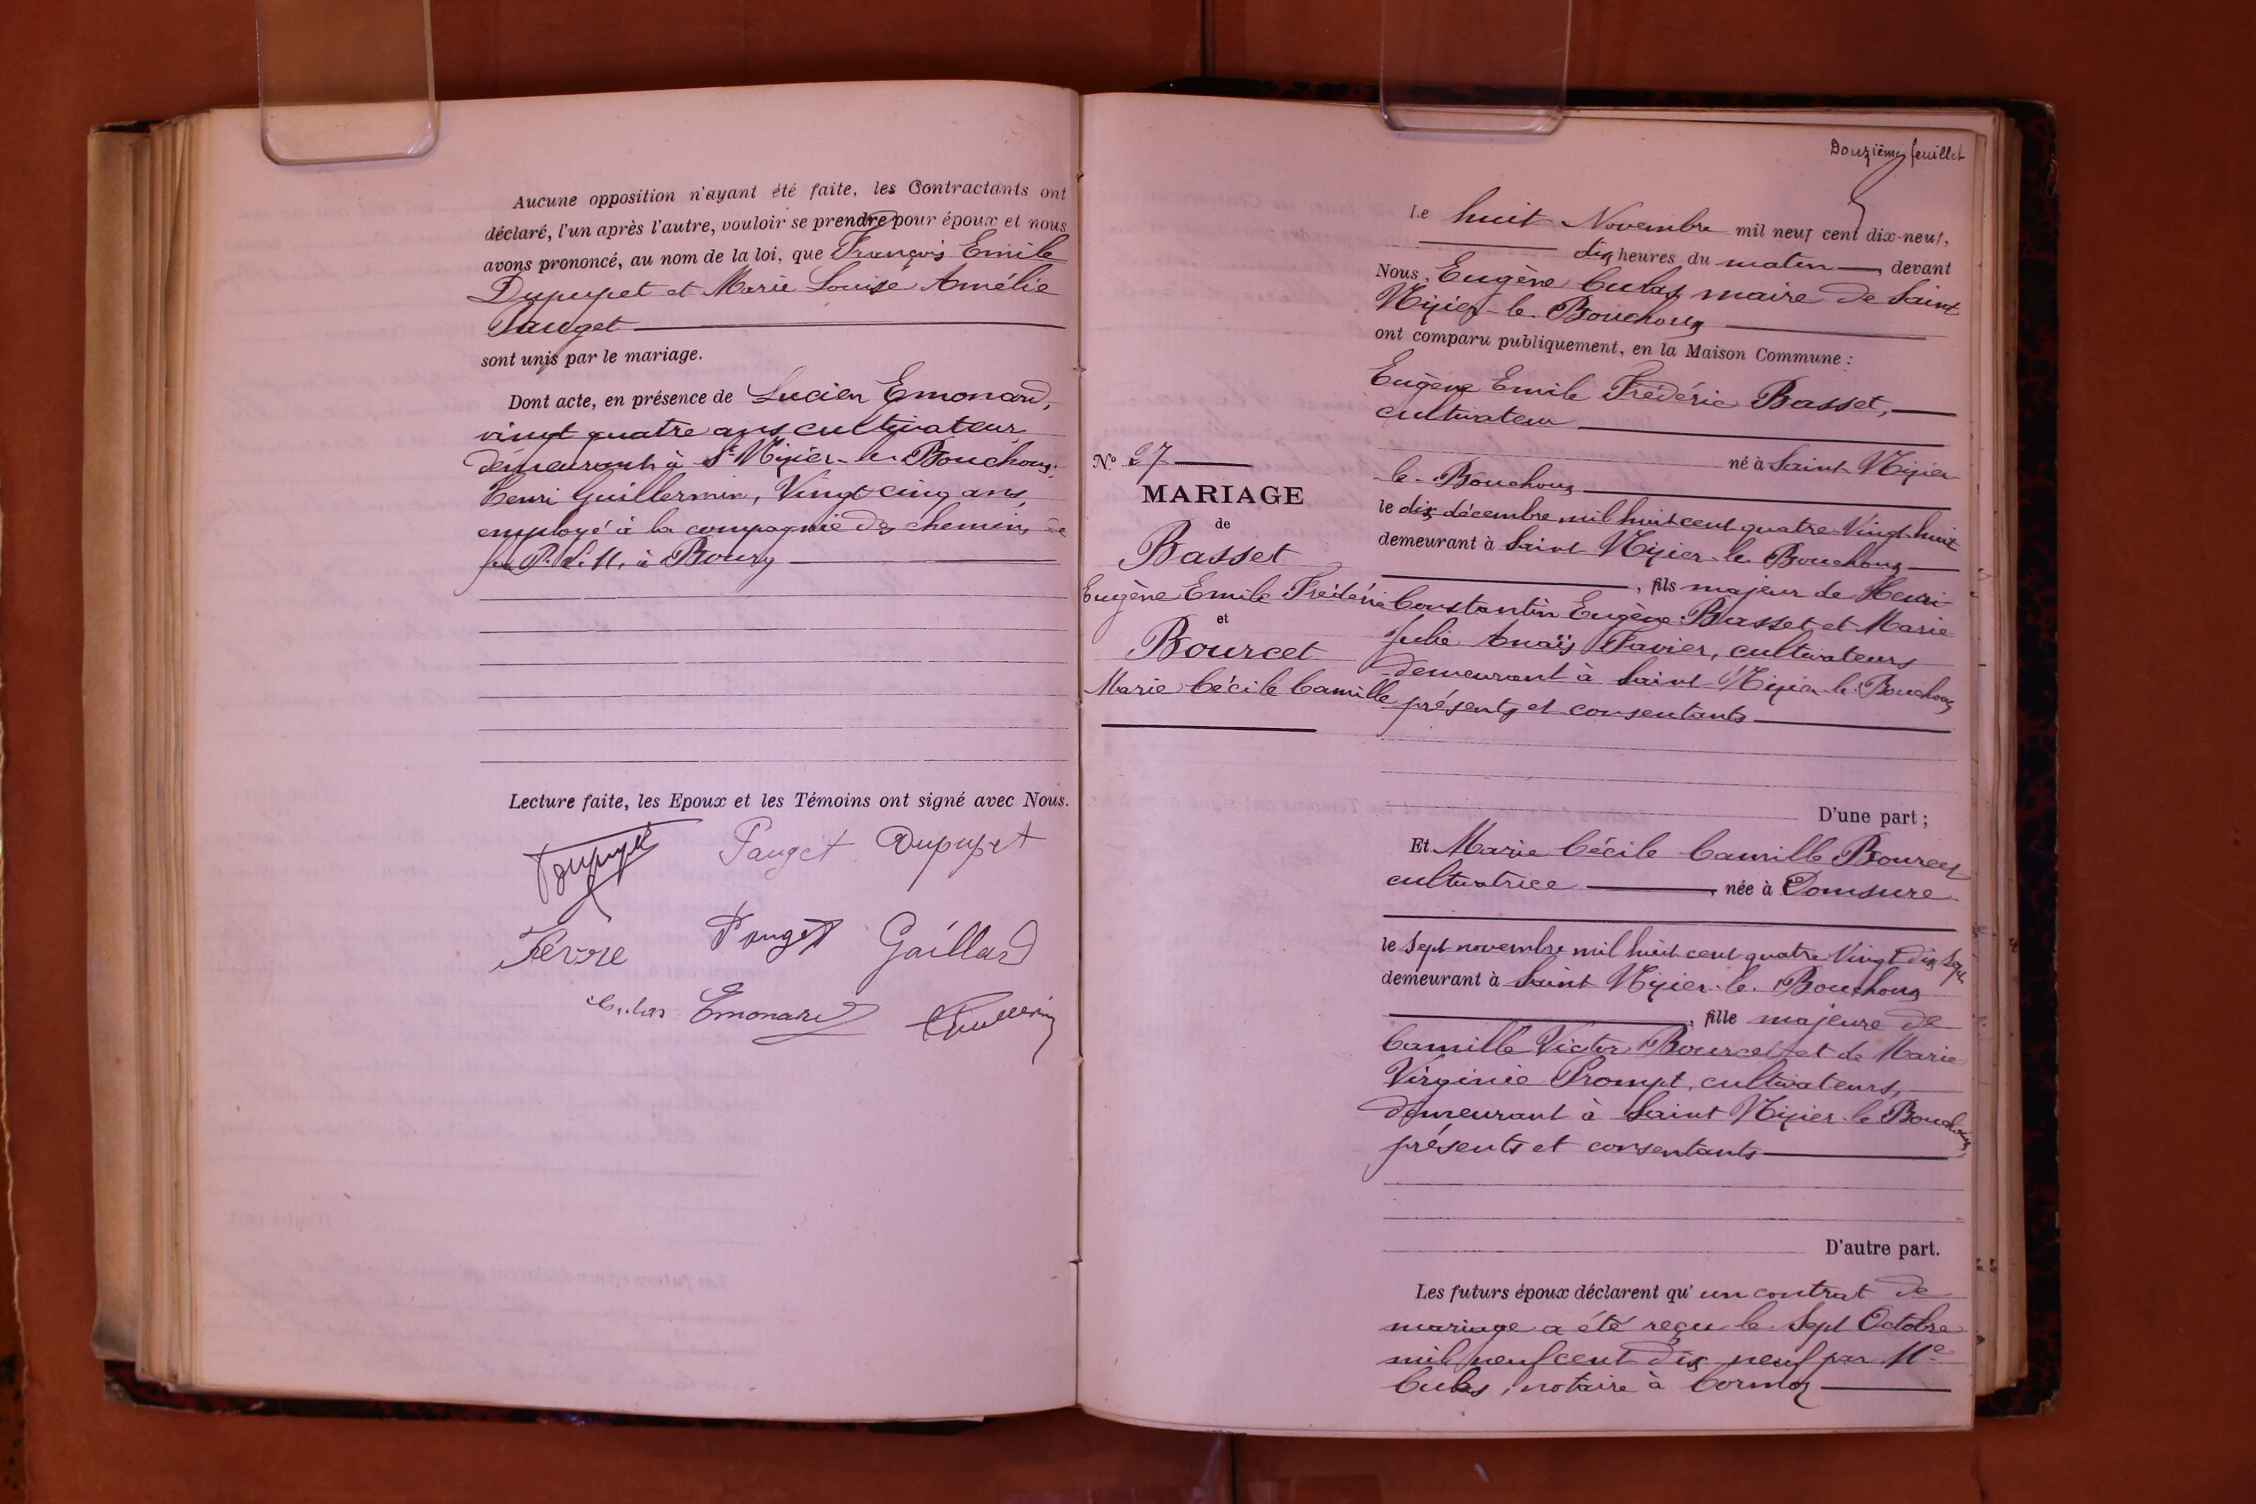 Aucune opposition n'ayant été faite, les Contractants ont
déclaré, l'un après l'autre, vouloir se prendre pour époux et nous
avons prononcé, au nom de la loi, que François Emile
Dupupet et Marie Louise Amélie
Pauget
sont unis par le mariage.
Dont acte, en présence de Lucien Emonard,
vingt quatre ans cultivateur
demeurant à St Nizier-le-Bouchoux.
Henri Guillermin, Vingt cinq ans,
employé à la compagnie des chemins de
fer P. L. M. à Bourg
Lecture faite, les Epoux et les Témoins ont signé avec Nous.
Dupupet Pauget Dupupet
Fèvre Pauget Gaillard
Culas Emonard Guillermin
Douzième feuillet
Le huit Novembre mil neuf cent dix-neuf,
dix heures du matin, devant
Nous, Eugène Culas, maire de Saint
Nizier-le-Bouchoux
ont comparu publiquement, en la Maison Commune :
Eugène Emile Frédéric Basset,
cultivateur
né à Saint Nizier
le-Bouchoux
le dix décembre mil huit cent quatre Vingt-huit
demeurant à Saint Nizier-le-Bouchoux
, fils majeur de Henri
Constantin Eugène Basset et Marie
Julie Anaïs Favier, cultivateurs
demeurant à Saint-Nizier-le-Bouchoux
présents et consentants
N° 27
MARIAGE
de
Basset
Eugène Emile Frédéric
et
Bourcet
Marie Cécile Camille
D'une part ;
Et Marie Cécile Camille Bourcet
cultivatrice, née à Domsure
le Sept novembre mil huit cent quatre Vingt dix Sept
demeurant à Saint Nizier-le-Bouchoux
, fille majeure de
Camille Victor Bourcet et de Marie
Virginie Prompt, cultivateurs,
demeurant à Saint Nizier-le-Bouchoux
présents et consentants
D'autre part.
Les futurs époux déclarent qu'un contrat de
mariage a été reçu le Sept Octobre
mil neuf cent dix neuf par Me
Culas, notaire à Cormoz